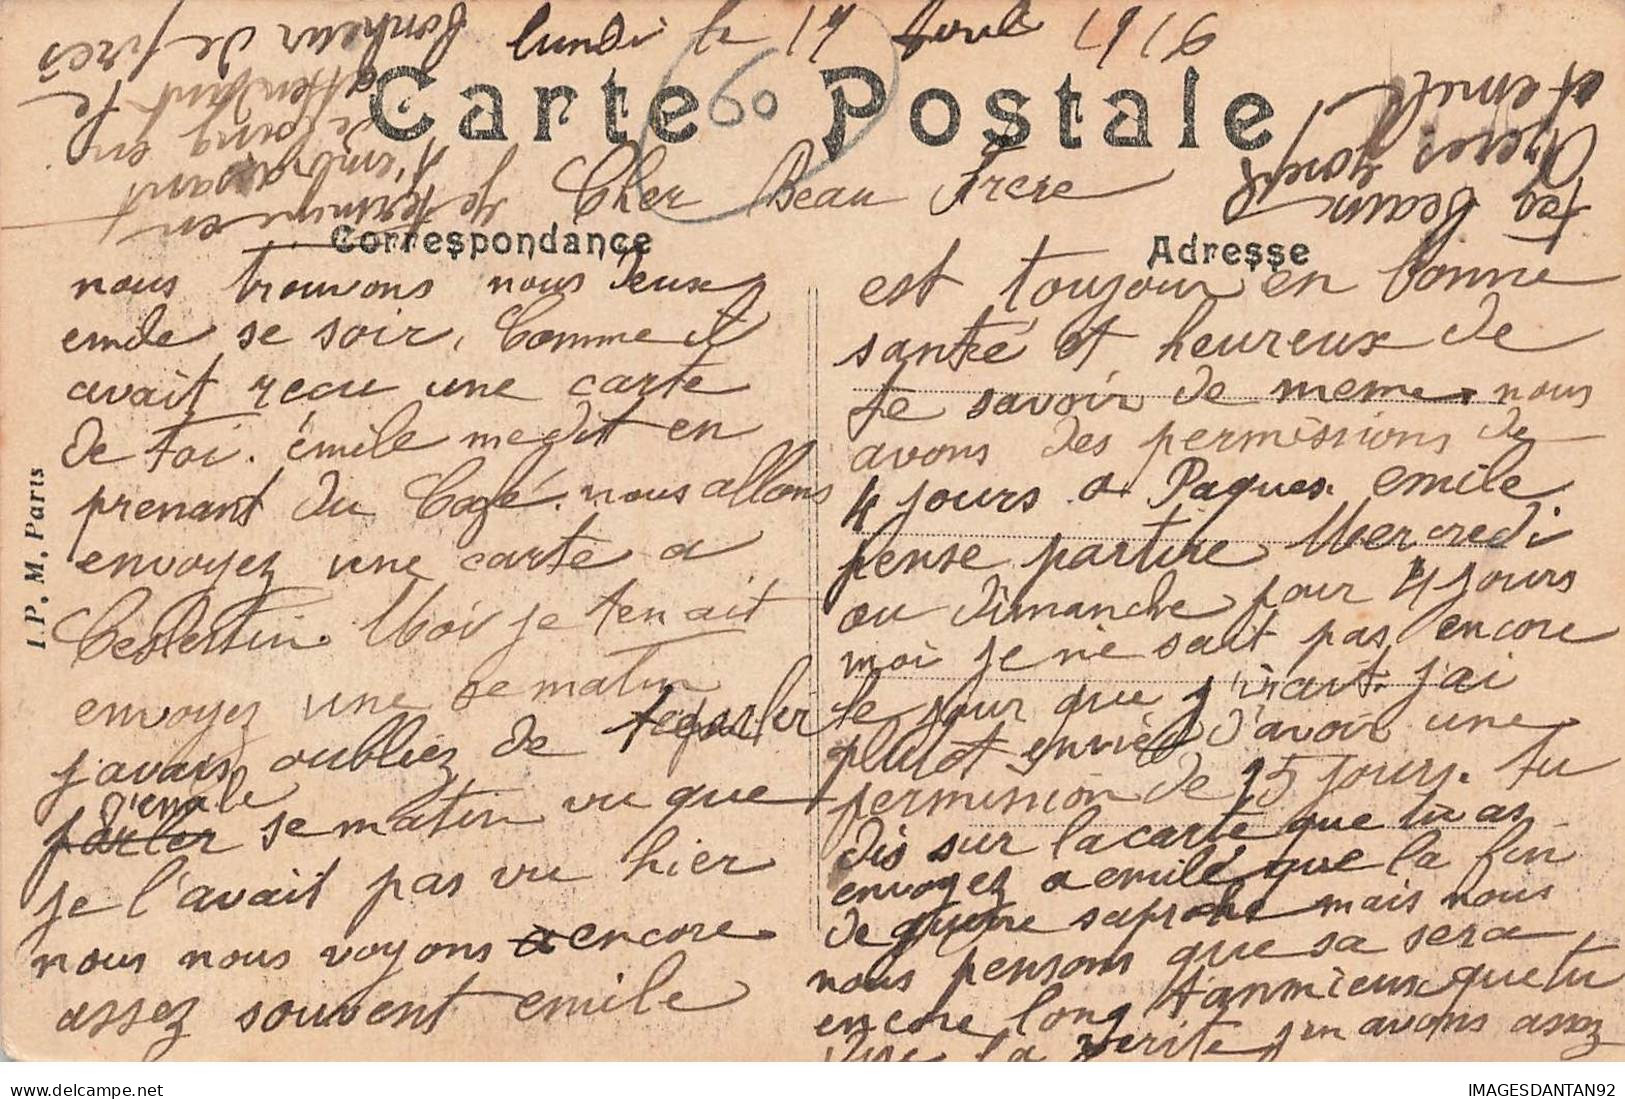 lundi le 17 Avril 1916
Carte Postale
60
Cher Beau Frere
Correspondance
nous trouvons nous deux
emile se soir, Comme il
avait recu une carte
de toi. émile me dit en
prenant du Café. nous allons
envoyez une carte a
Celestin. Moi je tenait
envoyez une se matin
j'avais oubliez de te parler
d'emile
parler se matin vu que
je l'avait pas vu hier
nous nous voyons encore
assez souvent emile
Adresse
est toujour en bonne
santé et heureux de
te savoir de meme. nous
avons des permissions de
4 jours a Paques. emile
pense partire Mercredi
ou dimanche pour 4 jours
moi je ne sait pas encore
le jour que j'irait. j'ai
plutot envies d'avoir une
permission de 15 jours. tu
dis sur la carte que tu as
envoyez a emile que la fin
de guerre saproche mais nous
nous pensons que sa sera
encore long tanmieux que tu
dise la verite j'en avons assez
Je termine en
t'embrasant
de loing en
attendant le
bonheur de
tes beaux
freres
et emile
I. P. M. Paris
IMAGESDANTAN92